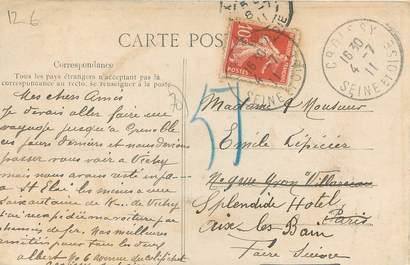 12 6
CARTE POS
Correspondance
Tous les pays étrangers n'acceptant pas la
correspondance au recto, se renseigner à la poste.
Mes chers Amis
Je devais aller faire un
voyage jusqu'à Grenoble
ces jours derniers et nous devions
passer vous voir à Vichy
mais nous avons resté en
a St Eloi les mines a une
soixantaine de K de Vichy
ma voiture par
chemins de fer. Nos meilleures
pour tous les deux
Albert 6 avenue
10
CROISSY
16 30
4 - 7
11
SEINE ET OISE
57
Madame & Monsieur
Emile Lépicier
Splendide Hotel
Paris
Aix les Bain
Faire Suivre